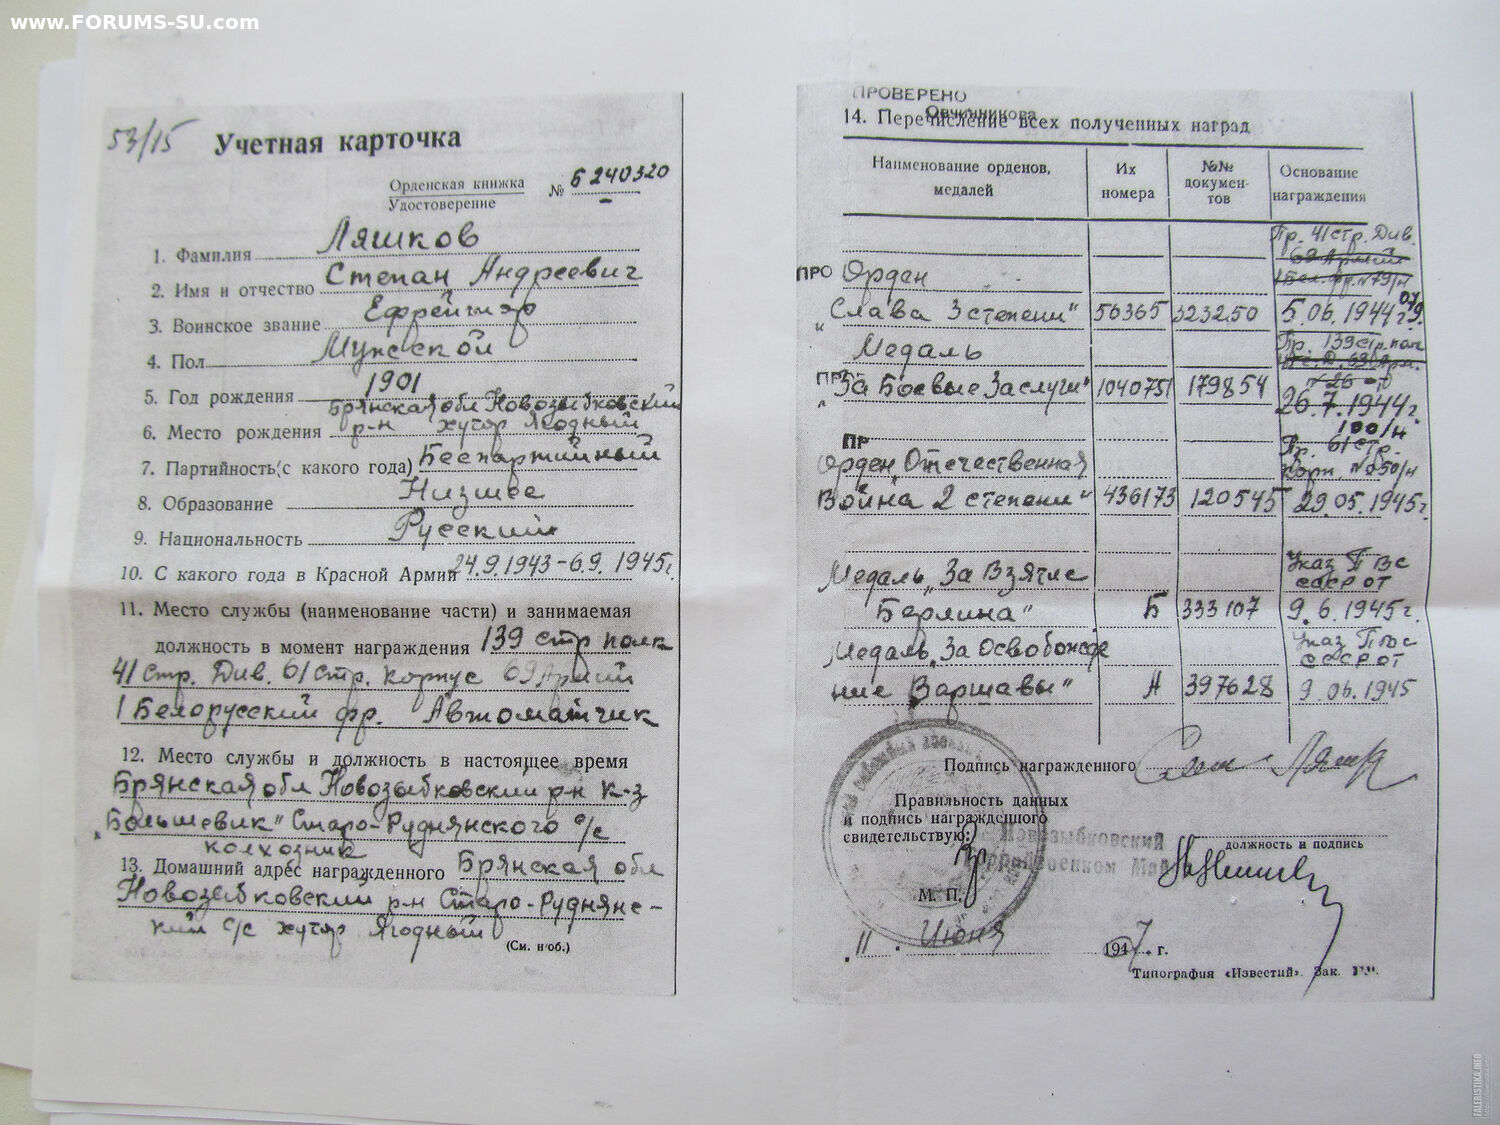 www.FORUMS-SU.com
53/15
Учетная карточка
Орденская книжка
Удостоверение
№ Б 240320
1. Фамилия Ляшков
2. Имя и отчество Степан Андреевич
3. Воинское звание Ефрейтор
4. Пол Мужской
5. Год рождения 1901
6. Место рождения Брянская обл Новозыбковский
р-н хутор Ягодный
7. Партийность (с какого года) Беспартийный
8. Образование Низшее
9. Национальность Русский
10. С какого года в Красной Армии 24.9.1943-6.9.1945г.
11. Место службы (наименование части) и занимаемая
должность в момент награждения 139 стр полк
41 Стр. Див. 61 Стр. Корпус 69 Армии
1 Белорусский фр. Автоматчик
12. Место службы и должность в настоящее время
Брянская обл Новозыбковский р-н к-з
„Большевик" Старо-Руднянского с/с
колхозник
13. Домашний адрес награжденного Брянская обл
Новозыбковский р-н Старо-Руднянс-
кий с/с хутор Ягодный
(См. н об.)
ПРОВЕРЕНО
Овчинникова
14. Перечисление всех полученных наград
Наименование орденов,
медалей
Их
номера
№№
докумен-
тов
Основание
награждения
Пр. 41 стр. Див.
69 Армии
ПРО Орден
„Слава 3 степени" 56365 5.06.1944г.
Медаль Пр. 139 стр. пол
„За Боевые Заслуги" 1040751 179854 26.7.1944г.
100/н
ПР
Пр. 61 стр.
Орден Отечественная Корп. №050/н
Война 2 степени" 436173 120545 29.05.1945г.
Медаль „За Взятие Указ ПВС
СССР от
Берлина" Б 333107 9.6.1945г.
Медаль „За Освобожде Указ ПВС
СССР от
ние Варшавы" А 397628 9.06.1945
Подпись награжденного
Правильность данных
и подпись награжденного
свидетельствую:
Новозыбковский
должность и подпись
М. П.
„11" Июня 1947 г.
Типография «Известий». Зак.
FALERISTIKA.INFO